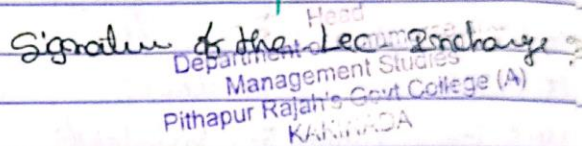 Head
Signature of the Lec-Incharge
Department of Commerce
Management Studies
Pithapur Rajah's Govt College (A)
KAKINADA